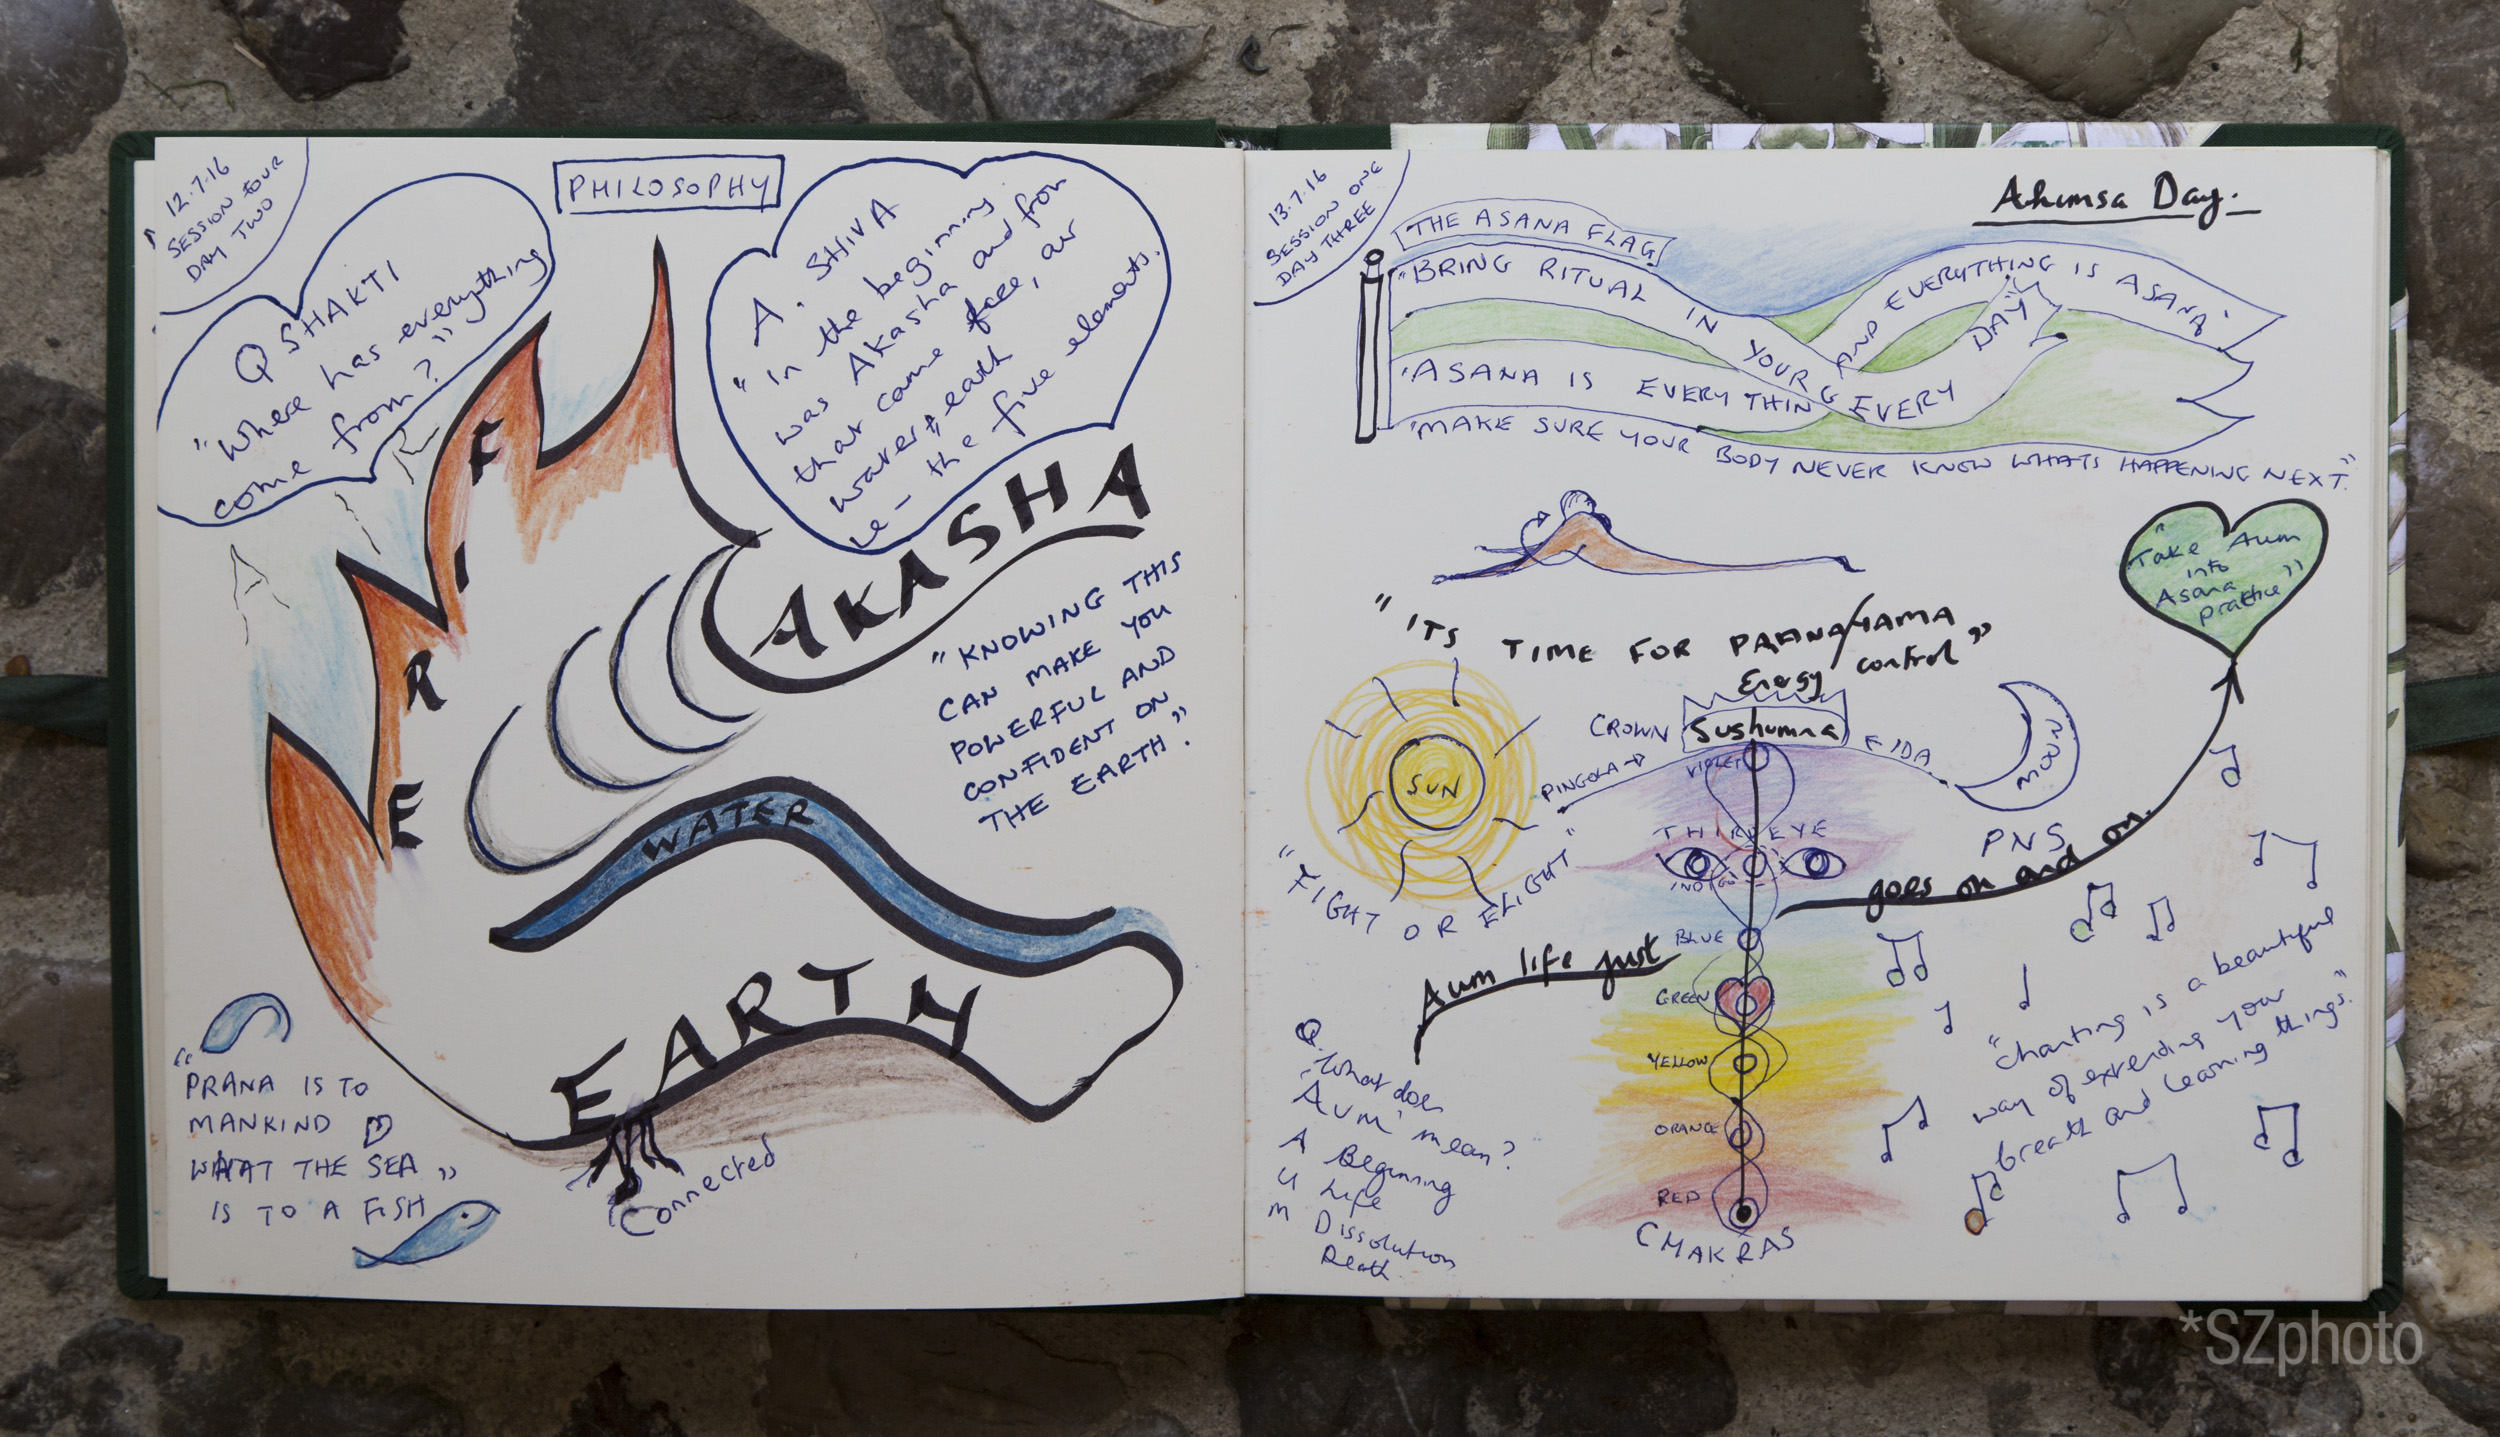 12.7.16
SESSION FOUR
DAY TWO
PHILOSOPHY
Q SHAKTI
"Where has everything
come from?"
A. SHIVA
"In the beginning
was Akasha and from
that came fire, air
water & earth
ie - the five elements.
AIR
FIRE
AKASHA
"KNOWING THIS
CAN MAKE YOU
POWERFUL AND
CONFIDENT ON
THE EARTH".
WATER
EARTH
Connected
"PRANA IS TO
MANKIND
WHAT THE SEA
IS TO A FISH"
13.7.16
SESSION ONE
DAY THREE
Ahimsa Day.
THE ASANA FLAG
"BRING RITUAL IN YOUR EVERY DAY"
'ASANA IS EVERYTHING AND EVERYTHING IS ASANA'
"MAKE SURE YOUR BODY NEVER KNOW WHATS HAPPENING NEXT."
"Take Aum
into
Asana
practice"
"ITS TIME FOR PRANAYAMA
Energy control"
CROWN
Sushumna
PINGOLA
EIDA
SUN
MOON
VIOLET
THIRD EYE
INDIGO
PNS
"FIGHT OR FLIGHT"
Aum life just
goes on and on.
BLUE
GREEN
YELLOW
ORANGE
RED
CHAKRAS
Q.
"What does
'Aum' mean?
A Beginning
U Life
M Dissolution
Death.
"Chanting is a beautiful
way of extending your
breath and learning things."
*SZphoto